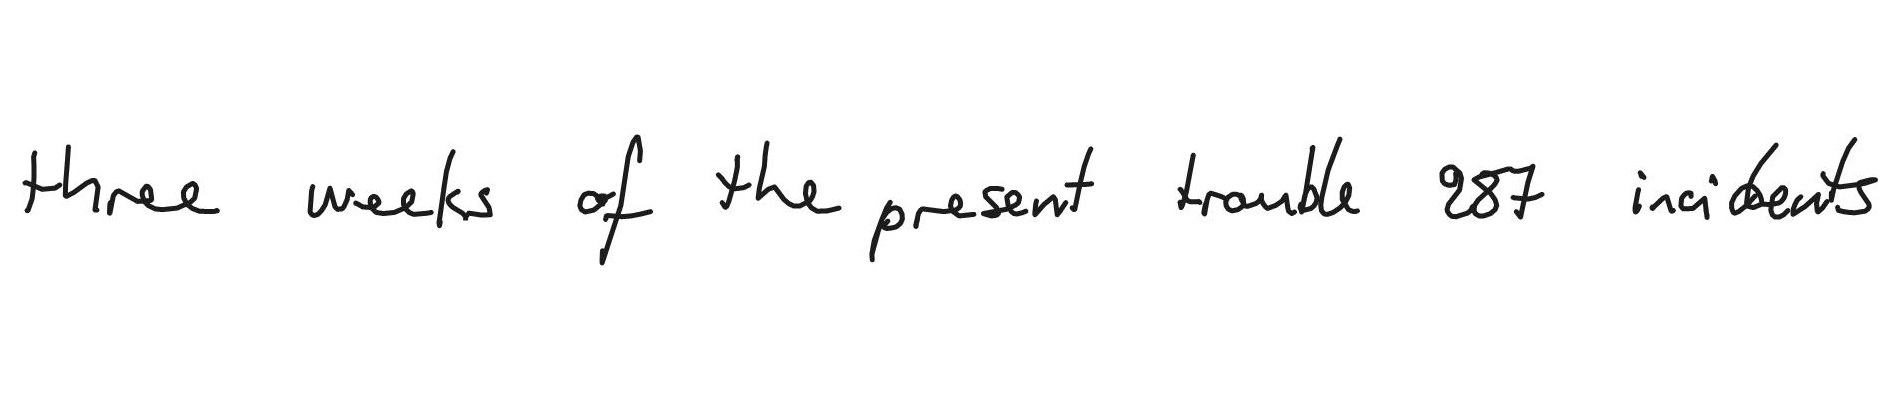 three weeks of the present trouble 287 incidents